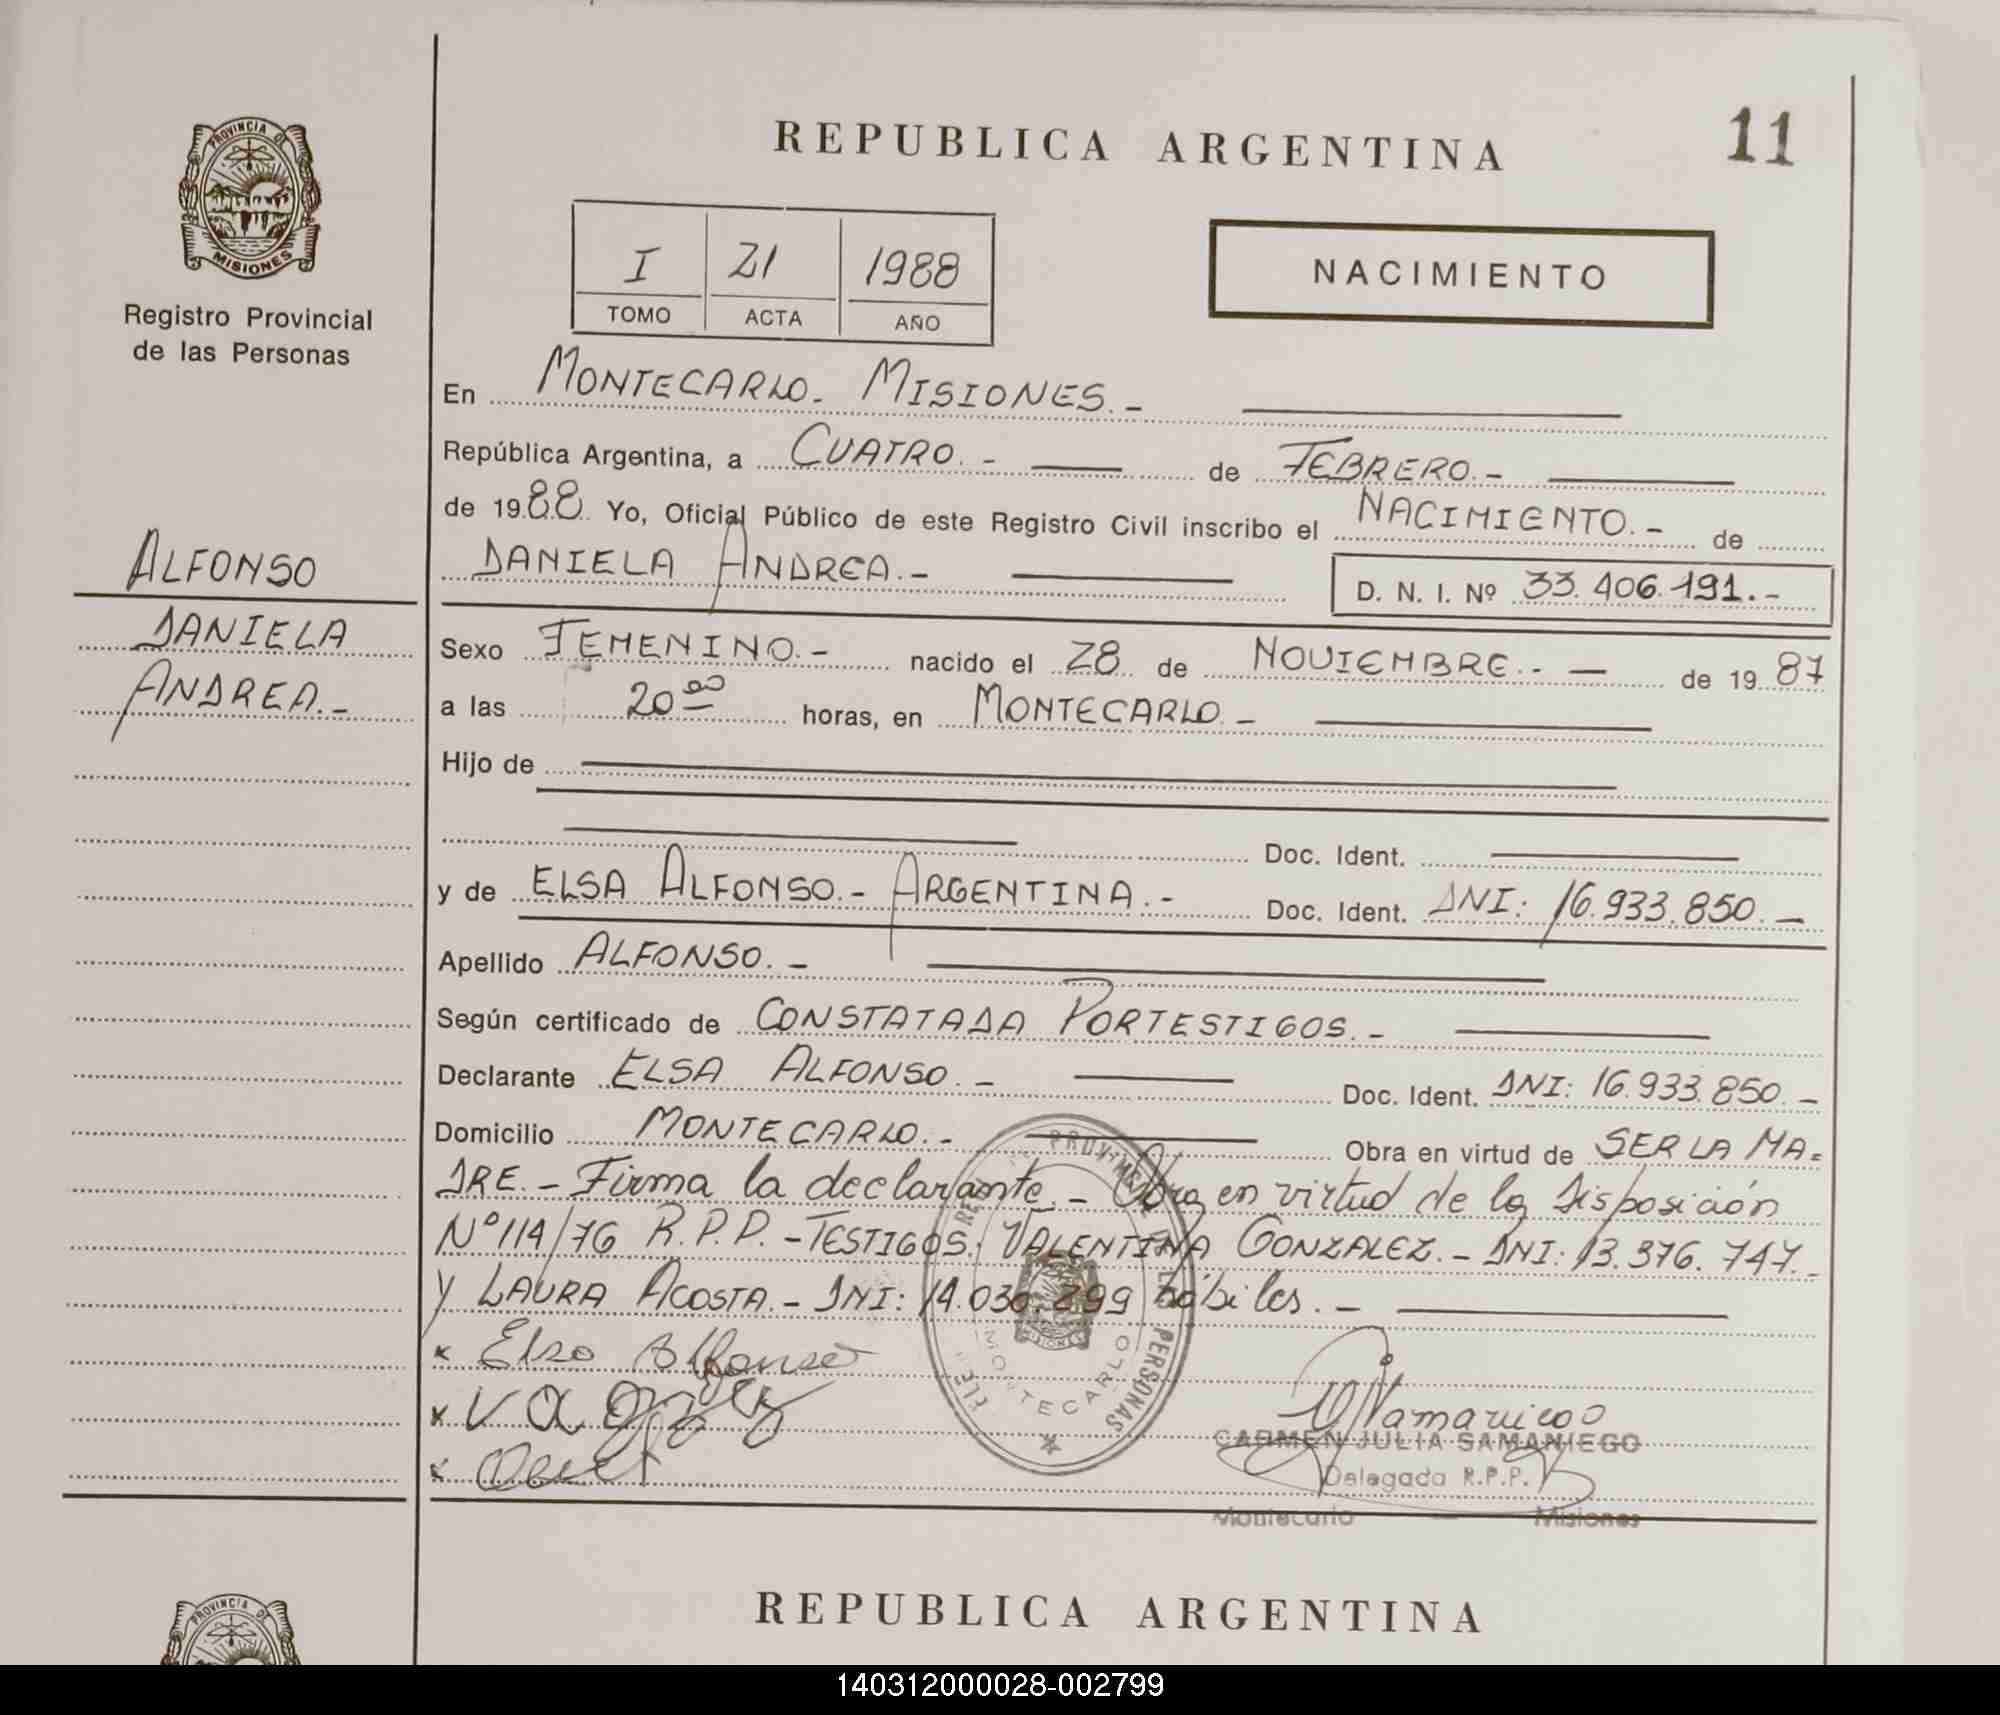 REPUBLICA ARGENTINA
11
PROVINCIA DE
MISIONES
Registro Provincial
de las Personas
I 21 1988
TOMO ACTA AÑO
NACIMIENTO
En MONTECARLO.- MISIONES.-
República Argentina, a CUATRO.- de FEBRERO.-
de 1988 Yo, Oficial Público de este Registro Civil inscribo el NACIMIENTO.- de
DANIELA ANDREA.- D. N. I. Nº 33.406.191.-
ALFONSO
DANIELA
ANDREA.-
Sexo FEMENINO.- nacido el 28 de NOVIEMBRE.- de 1987
a las 20 00 horas, en MONTECARLO.-
Hijo de
Doc. Ident.
y de ELSA ALFONSO.- ARGENTINA.- Doc. Ident. DNI: 16.933.850.-
Apellido ALFONSO.-
Según certificado de CONSTATADA PORTESTIGOS.-
Declarante ELSA ALFONSO.- Doc. Ident. DNI: 16.933.850.-
Domicilio MONTECARLO.- Obra en virtud de SER LA MA=
DRE.- Firma la declarante.- Obra en virtud de la Disposición
Nº 114/76 R.P.P.- TESTIGOS: VALENTINA GONZALEZ.- DNI: 13.376.747.-
Y LAURA ACOSTA.- DNI: 14.030.299 hábiles.-
x Elsa Alfonso
x
x
MONTECARLO
PERSONAS
CARMEN JULIA SAMANIEGO
Delegada R.P.P.
Montecarlo - Misiones
REPUBLICA ARGENTINA
PROVINCIA DE
140312000028-002799